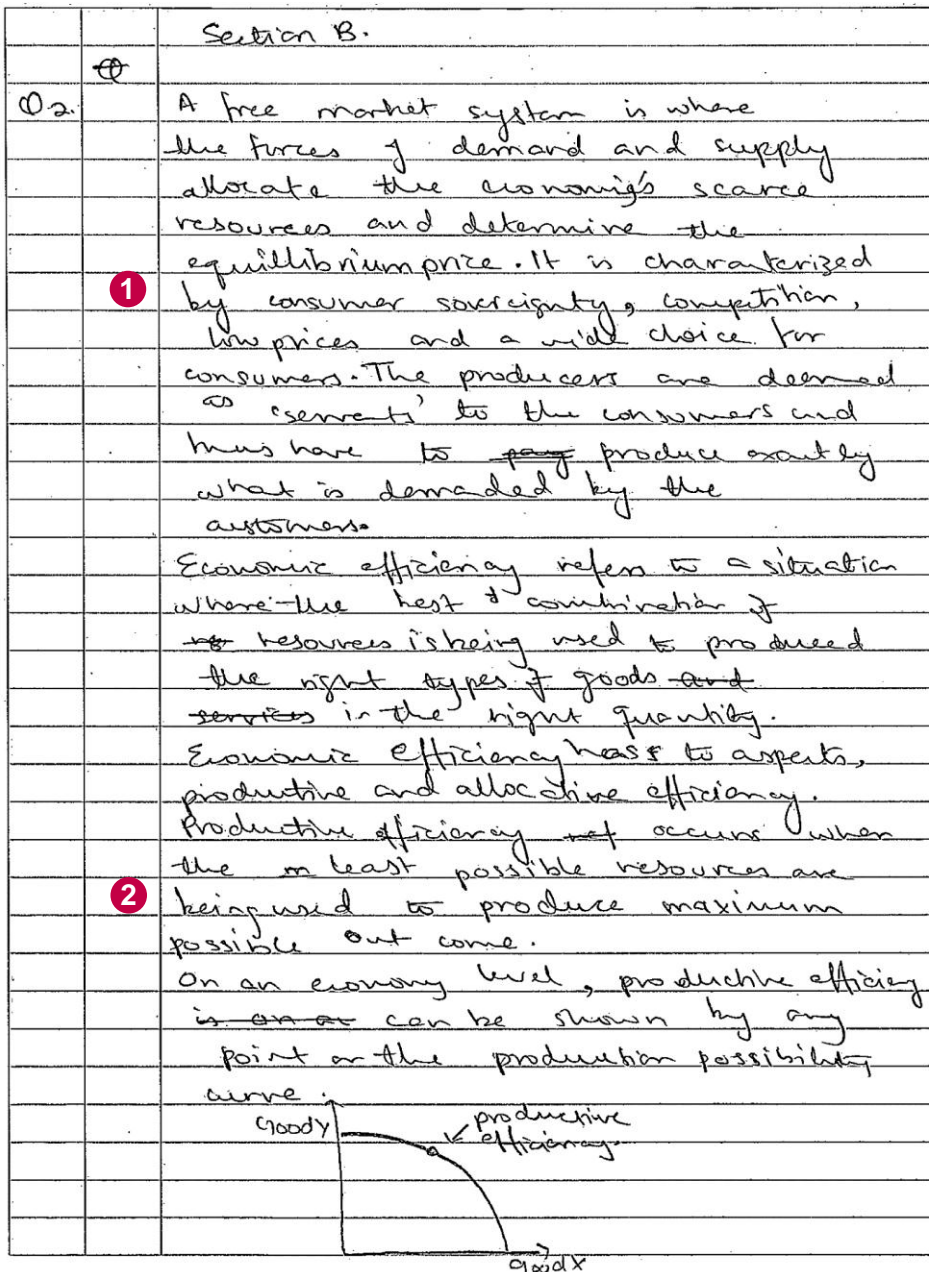 Section B.
Q2. A free market system is where
the forces of demand and supply
allocate the economie's scarce
resources and determine the
equillibrium price. It is charaterized
1
by consumer sovereignty, competition,
low prices and a wide choice for
consumers. The producers are deemed
as 'servents' to the consumers and
thus have to produce exactly
what is demaded by the
customers.
Economic efficiency refers to a situation
where the best combination of
resources is being used to produced
the right types of goods
in the right quantity.
Economic efficiency has to aspects,
productive and allocative efficiency.
Productive efficiency occurs when
the least possible resources are
2
being used to produce maximum
possible out come.
On an economy level, productive efficiency
can be shown by any
point on the production possibility
curve.
Good Y
productive
efficiency.
Good X